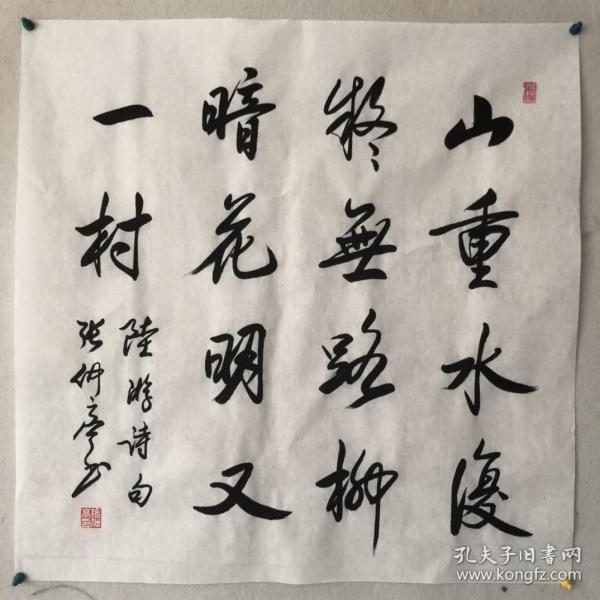 山重水復
疑無路柳
暗花明又
一村
陸游詩句
张仲亭书
孔夫子旧书网
www.kongfz.com